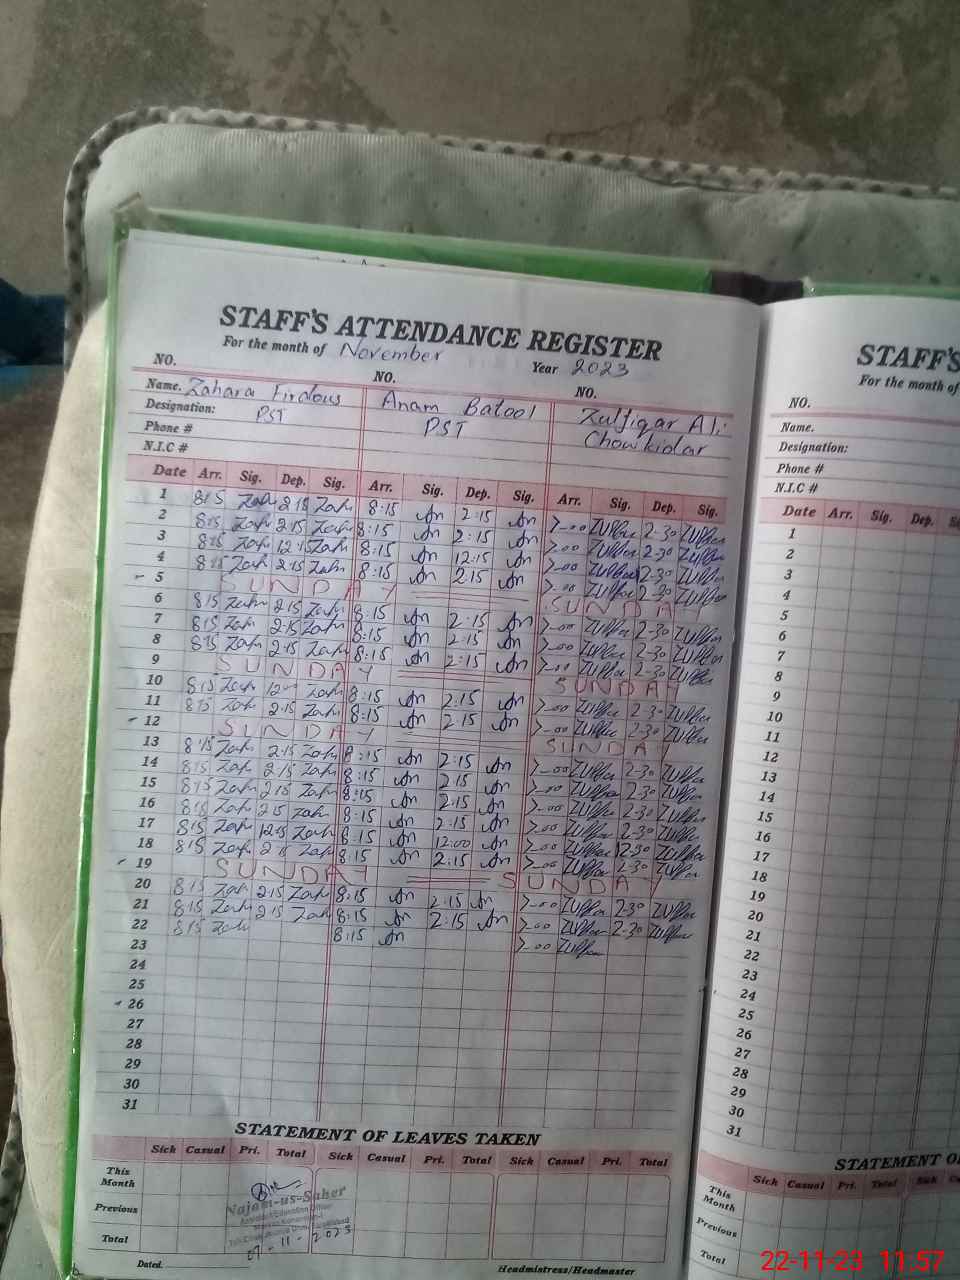 STAFF'S ATTENDANCE REGISTER
For the month of November Year 2023
NO. NO. NO.
Name. Zahara Firdous Anam Batool Zulfiqar Ali
Designation: PST PST Chowkidar
Phone #
N.I.C #
Date Arr. Sig. Dep. Sig. Arr. Sig. Dep. Sig. Arr. Sig. Dep. Sig.
1 8:15 Zah 2:15 Zah 8:15 An 2:15 An 7-00 2-30
2 8:15 Zah 2:15 Zah 8:15 An 2:15 An 7-00 2-30
3 8:15 Zah 12:15 Zah 8:15 An 12:15 An 7-00 2-30
4 8:15 Zah 2:15 Zah 8:15 An 2:15 An 7-00 2-30
5 SUNDAY SUNDAY
6 8:15 Zah 2:15 Zah 8:15 An 2:15 An 7-00 2-30
7 8:15 Zah 2:15 Zah 8:15 An 2:15 An 7-00 2-30
8 8:15 Zah 2:15 Zah 8:15 An 2:15 An 7-00 2-30
9 SUNDAY SUNDAY
10 8:15 Zah 12:00 Zah 8:15 An 2:15 An 7-00 2-30
11 8:15 Zah 2:15 Zah 8:15 An 2:15 An 7-00 2-30
12 SUNDAY SUNDAY
13 8:15 Zah 2:15 Zah 8:15 An 2:15 An 7-00 2-30
14 8:15 Zah 2:15 Zah 8:15 An 2:15 An 7-00 2-30
15 8:15 Zah 2:15 Zah 8:15 An 2:15 An 7-00 2-30
16 8:15 Zah 2:15 Zah 8:15 An 2:15 An 7-00 2-30
17 8:15 Zah 12:15 Zah 8:15 An 12:00 An 7-00 12-30
18 8:15 Zah 2:15 Zah 8:15 An 2:15 An 7-00 2-30
19 SUNDAY SUNDAY
20 8:15 Zah 2:15 Zah 8:15 An 2:15 An 7-00 2-30
21 8:15 Zah 2:15 Zah 8:15 An 2:15 An 7-00 2-30
22 8:15 Zah 8:15 An 7-00
23
24
25
26
27
28
29
30
31
STATEMENT OF LEAVES TAKEN
Sick Casual Pri. Total Sick Casual Pri. Total Sick Casual Pri. Total
This Month
Previous
Total
Najam-us-Saher
07-11-2023
Dated. Headmistress/Headmaster
STAFF'S
For the month of
NO.
Name.
Designation:
Phone #
N.I.C #
Date Arr. Sig. Dep. Sig.
1
2
3
4
5
6
7
8
9
10
11
12
13
14
15
16
17
18
19
20
21
22
23
24
25
26
27
28
29
30
31
STATEMENT OF
Sick Casual Pri. Total Sick
This Month
Previous
Total
22-11-23 11:57